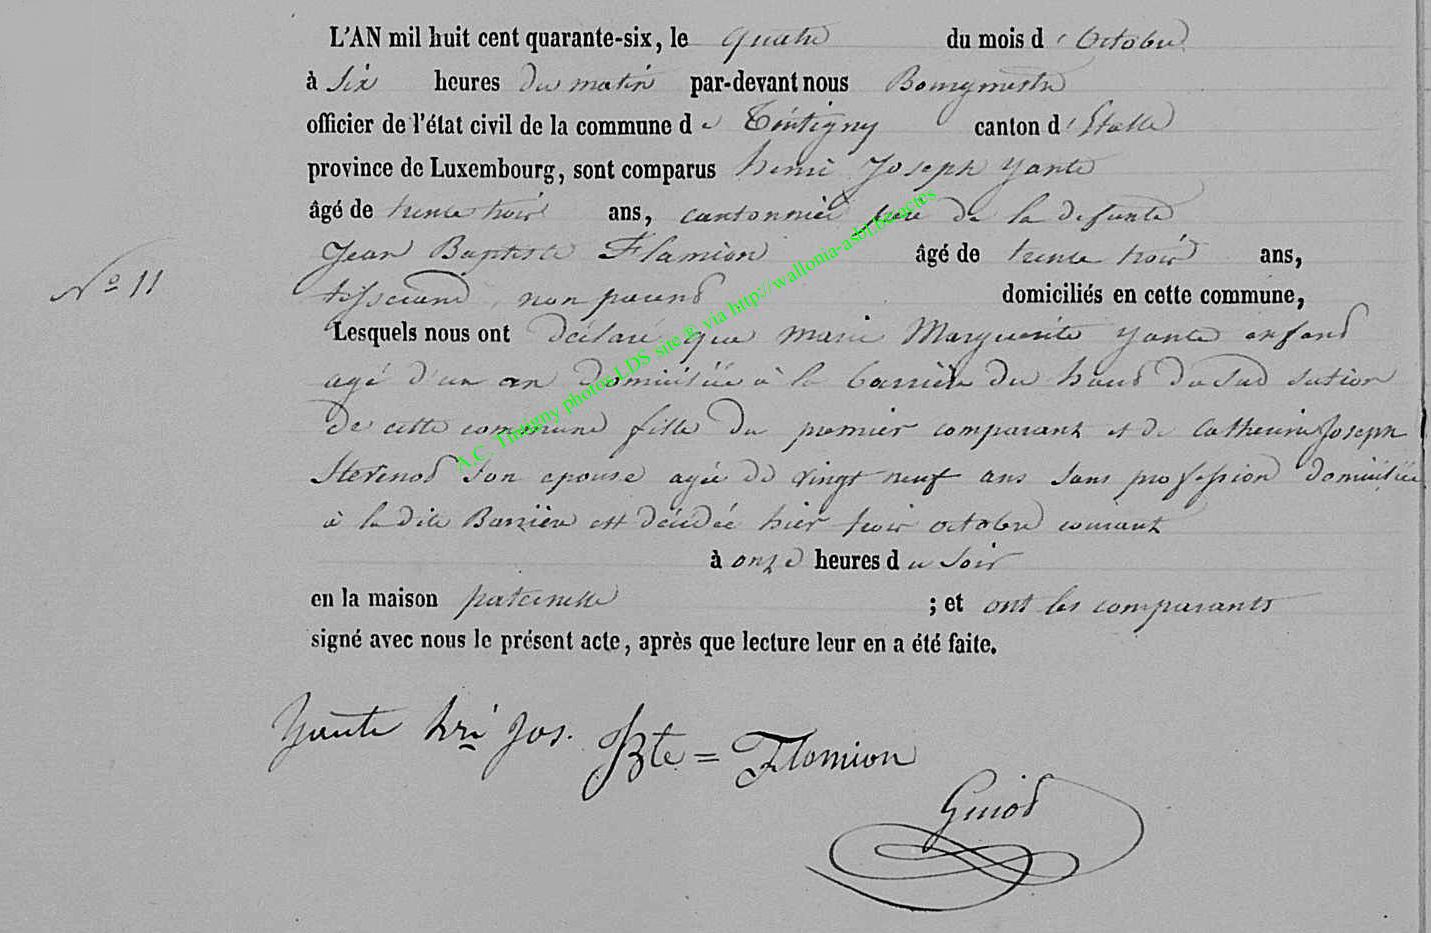 L'AN mil huit cent quarante-six, le quatre du mois d'Octobre
à six heures du matin par-devant nous Bourgmestre
officier de l'état civil de la commune de Tintigny canton d'Etalle
province de Luxembourg, sont comparus henri Joseph Yante
âgé de trente trois ans, cantonnier père de la defunte
Jean Baptiste Flamion âgé de trente trois ans,
N° 11
tisserand non parend domiciliés en cette commune,
Lesquels nous ont déclaré que marie Marguerite Yante enfand
agé d'un an domiciliée à la barrière du haud du sud sution
de cette commune fille du premier comparant et de Catherine Joseph
Stevenod son epouse agée de vingt neuf ans sans profession domiciliée
à la dite Barrière est décédée hier trois octobre courant
à onze heures du soir
en la maison paternelle ; et ont les comparants
signé avec nous le présent acte, après que lecture leur en a été faite.
Yante hri Jos. JBte = Flamion
Guiod
A.C. Tintigny photos LDS site ® via http://wallonia-asbl.be/actes